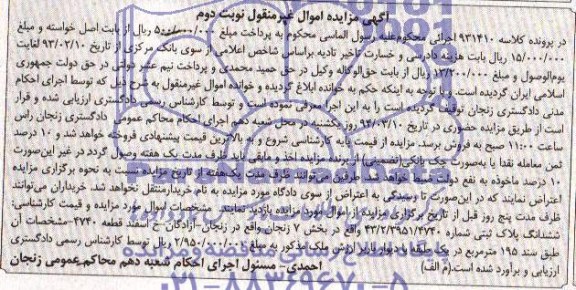 آگهی مزایده اموال غیرمنقول نوبت دوم
در پرونده کلاسه ۹۳۱۴۱۰ اجرائی محکوم‌علیه رسول الماسی محکوم به پرداخت مبلغ ۵۰۰/۰۰۰/۰۰۰ ریال از بابت اصل خواسته و مبلغ
۱۵/۰۰۰/۰۰۰ ریال بابت هزینه دادرسی و خسارت تاخیر تادیه براساس شاخص اعلامی از سوی بانک مرکزی از تاریخ ۹۳/۰۲/۱۰ لغایت
یوم‌الوصول و مبلغ ۱۳/۲۰۰/۰۰۰ ریال از بابت حق‌الوکاله وکیل در حق حمید محمدی و پرداخت نیم عشر دولتی در حق دولت جمهوری
اسلامی ایران گردیده است. و با توجه به اینکه حکم به خوانده ابلاغ گردیده و خوانده اموال غیرمنقول به شرح ذیل که توسط اجرای احکام
مدنی دادگستری زنجان توقیف گردیده است را به این اجرا معرفی نموده است و توسط کارشناس رسمی دادگستری ارزیابی شده و قرار
است از طریق مزایده حضوری در تاریخ ۹۴/۰۷/۱۰ روز یکشنبه در محل شعبه دهم اجرای احکام محاکم عمومی دادگستری زنجان راس
ساعت ۱۱:۰۰ صبح به فروش برسد. مزایده از قیمت پایه کارشناسی شروع و به بالاترین قیمت پیشنهادی فروخته خواهد شد و ۱۰ درصد
ثمن معامله نقدا یا به‌صورت چک بانکی(تضمینی) از برنده مزایده اخذ و مابقی باید ظرف مدت یک هفته وصول گردد در غیر این‌صورت
۱۰ درصد ماخوذه به نفع دولت ضبط خواهد شد. طرفین می‌توانند ظرف مدت یک‌هفته از تاریخ مزایده نسبت به نحوه برگزاری مزایده
اعتراض نمایند که در این‌صورت تا رسیدگی به اعتراض از سوی دادگاه مورد مزایده به نام خریدار منتقل نخواهد شد. خریداران می‌توانند
ظرف مدت پنج روز قبل از تاریخ برگزاری مزایده از اموال مورد مزایده بازدید نمایند. مشخصات اموال مورد مزایده و قیمت کارشناسی:
ششدانگ پلاک ثبتی شماره ۴۳/۲/۳۹۵۱/۴۷۴۰ واقع در بخش ۷ زنجان واقع در زنجان-آزادگان- خ اسفند قطعه ۴۷۴۰-مشخصات آن
طبق سند ۱۹۵ مترمربع در یک طبقه با دیوار با ارزش ملک مذکور به مبلغ ۲/۹۵۰/۰۰۰/۰۰۰ ریال توسط کارشناس رسمی دادگستری
ارزیابی و برآورد شده است.(م الف)
احمدی- مسئول اجرای احکام شعبه دهم محاکم عمومی زنجان
۰۲۱-۸۸۳۴۹۶۷۰-۵